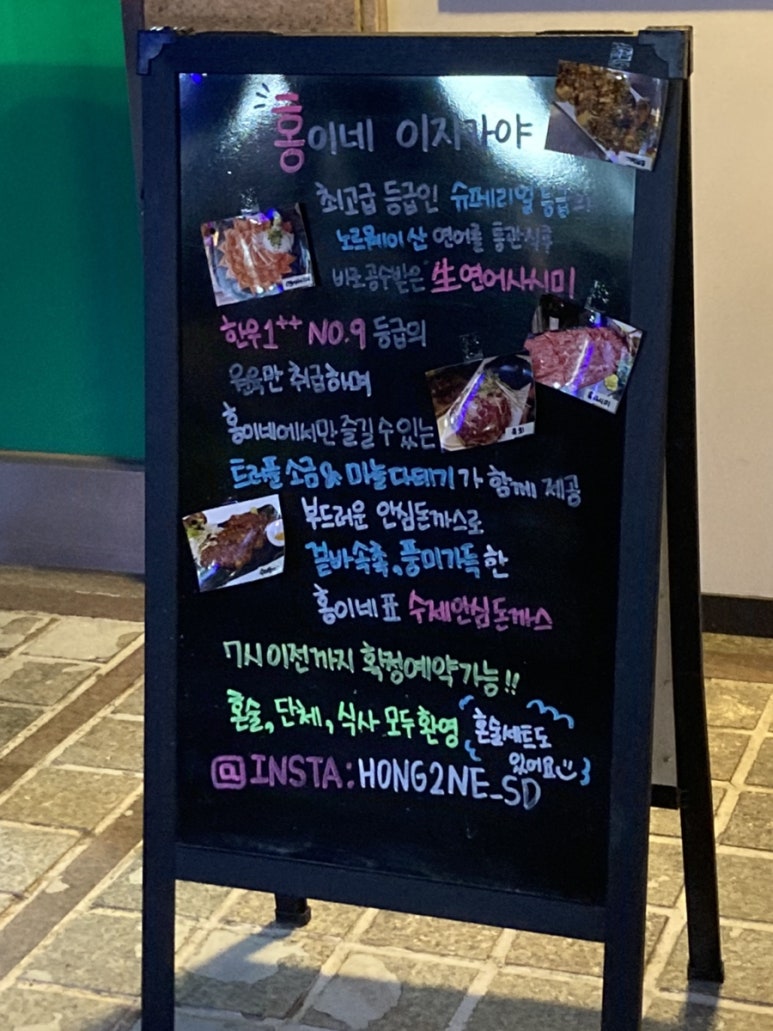 홍이네 이자카야
최고급 등급인 슈페리얼 등급의
노르웨이산 연어를 통관직후
바로공수받은 生연어사시미
한우1⁺⁺ NO.9 등급의
우육만 취급하며
홍이네에서만 즐길 수 있는
트러플소금& 마늘다데기가 함께 제공
부드러운 안심돈까스로
겉바속촉, 풍미가득한
홍이네표 수제안심돈까스
7시 이전까지 확정예약가능!!
혼술, 단체, 식사 모두환영
혼술세트도
있어요
@INSTA: HONG2NE_SD